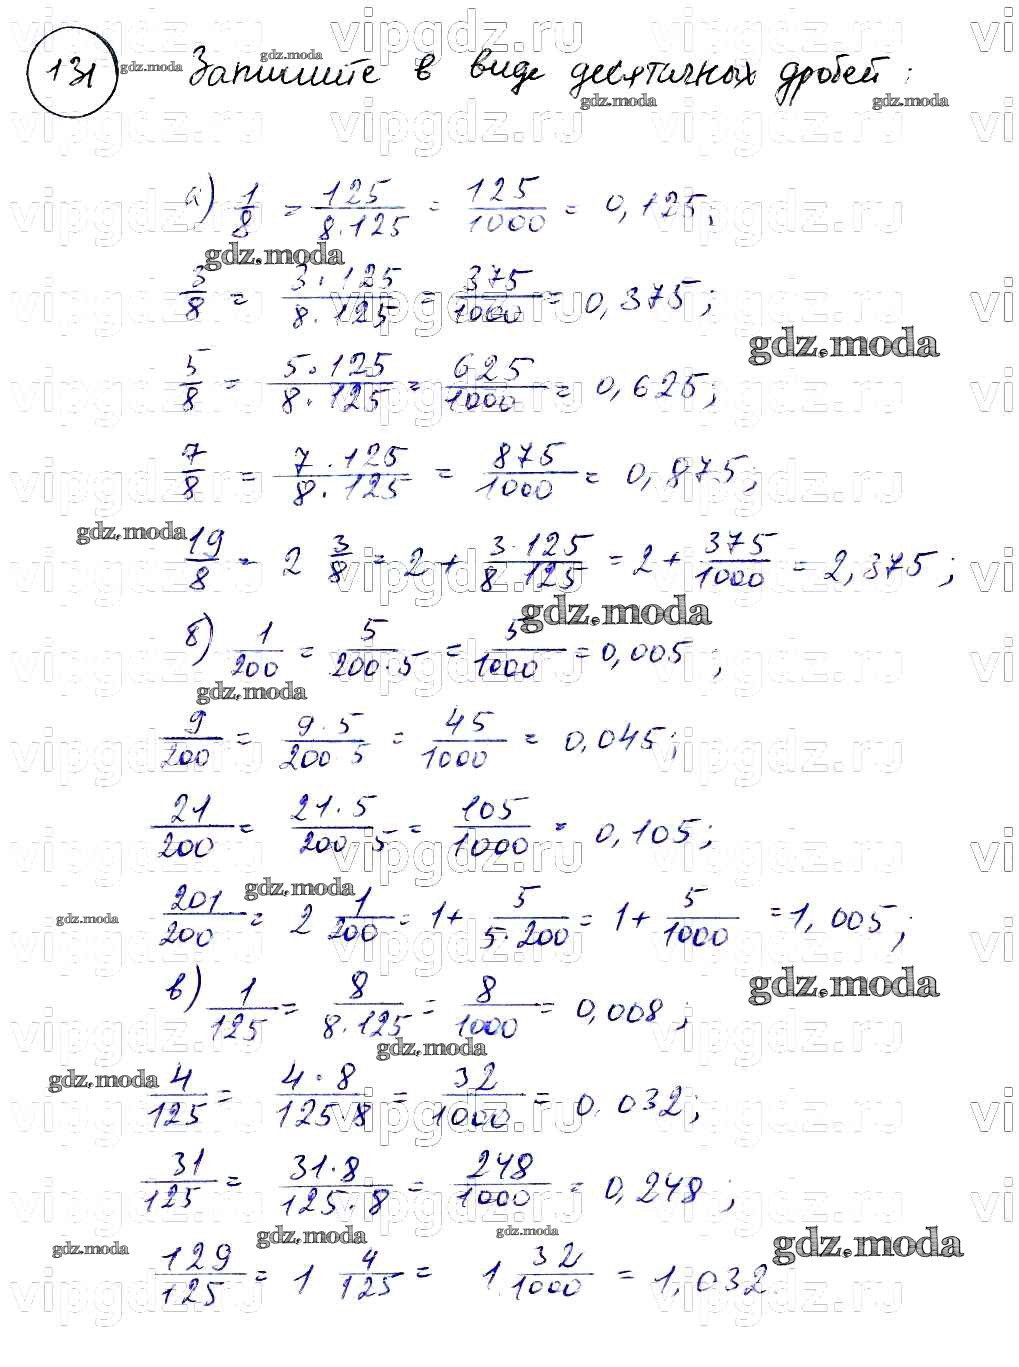 131 Запишите в виде десятичных дробей:
а) 1/8 = 125/(8·125) = 125/1000 = 0,125;
3/8 = (3·125)/(8·125) = 375/1000 = 0,375;
5/8 = (5·125)/(8·125) = 625/1000 = 0,625;
7/8 = (7·125)/(8·125) = 875/1000 = 0,875;
19/8 = 2 3/8 = 2 + (3·125)/(8·125) = 2 + 375/1000 = 2,375;
б) 1/200 = 5/(200·5) = 5/1000 = 0,005;
9/200 = (9·5)/(200·5) = 45/1000 = 0,045;
21/200 = (21·5)/(200·5) = 105/1000 = 0,105;
201/200 = 2 1/200 = 1 + 5/(5·200) = 1 + 5/1000 = 1,005;
в) 1/125 = 8/(8·125) = 8/1000 = 0,008;
4/125 = (4·8)/(125·8) = 32/1000 = 0,032;
31/125 = (31·8)/(125·8) = 248/1000 = 0,248;
129/125 = 1 4/125 = 1 32/1000 = 1,032
gdz.moda
vipgdz.ru